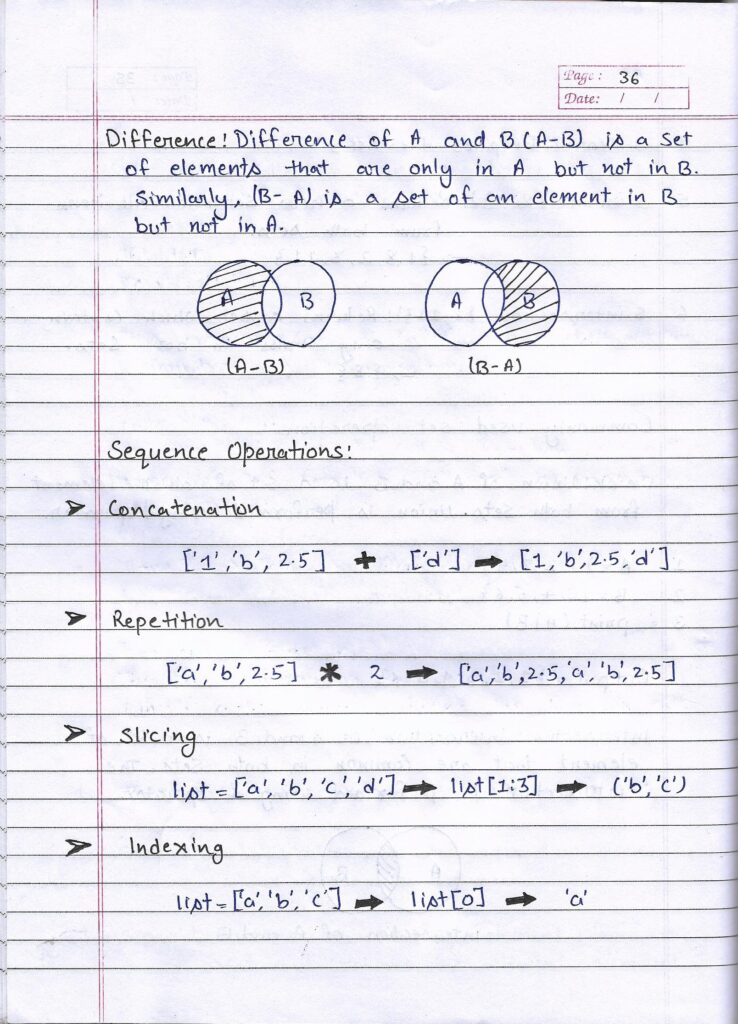 Page: 36
Date: / /
Difference: Difference of A and B (A-B) is a set
of elements that are only in A but not in B.
Similarly, (B-A) is a set of an element in B
but not in A.
A B A B
(A-B) (B-A)
Sequence Operations:
➤ Concatenation
['1','b', 2.5] + ['d'] ➡ [1,'b',2.5,'d']
➤ Repetition
['a','b',2.5] * 2 ➡ ['a','b',2.5,'a','b',2.5]
➤ Slicing
list = ['a','b','c','d'] ➡ list[1:3] ➡ ('b','c')
➤ Indexing
list = ['a','b','c'] ➡ list[0] ➡ 'a'